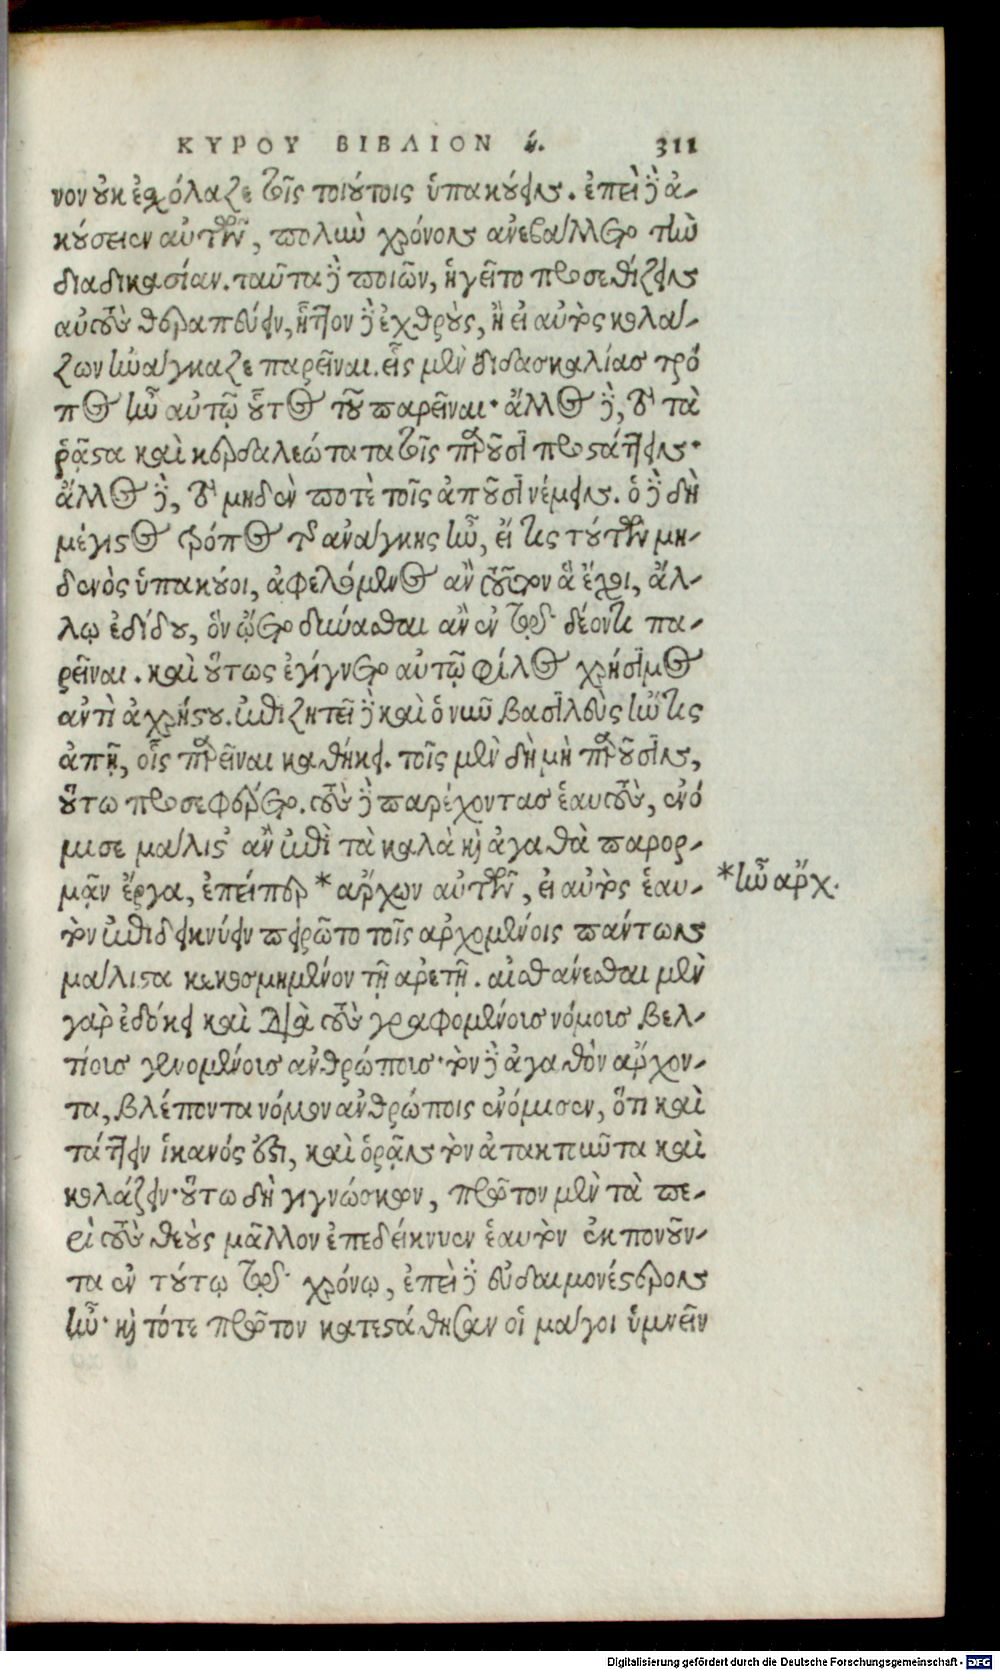 ΚΥΡΟΥ ΒΙΒΛΙΟΝ ή. 311
νον οὐκ ἐσχόλαζε τοῖς τοιούτοις ὑπακούειν. ἐπεὶ δὲ ἀ-
κούσειεν αὐτῶν, πολὺν χρόνον ἀνεβάλλετο τὴν
διαδικασίαν. ταῦτα δὲ ποιῶν, ἡγεῖτο προσεθίζειν
αὐτοὺς θεραπεύειν, ἧττον δὲ ἐχθροὺς, ἢ εἰ αὐτὸς κολά-
ζων ἠνάγκαζε παρεῖναι. εἷς μὲν διδασκαλίας τρό
πος ἦν αὐτῷ οὗτος τοῦ παρεῖναι· ἄλλος δὲ, τὸ τὰ
ῥᾷστα καὶ κερδαλεώτατα τοῖς παροῦσι προστάττειν·
ἄλλος δὲ, τὸ μηδέν ποτὲ τοῖς ἀποῦσι νέμειν. ὁ δὲ δὴ
μέγιστος τρόπος τῆς ἀνάγκης ἦν, εἴ τις τούτων μη-
δενὸς ὑπακούοι, ἀφελόμενος ἂν τοῦτον ἃ ἔχοι, ἄλ-
λῳ ἐδίδου, ὃν ᾤετο δύνασθαι ἂν ἐν τῷ δέοντι πα-
ρεῖναι. καὶ οὕτως ἐγίγνετο αὐτῷ φίλος χρήσιμος
ἀντὶ ἀχρήστου. ἐπιζητεῖ δὲ καὶ ὁ νῦν βασιλεὺς ἤν τις
ἀπῇ, οἷς παρεῖναι καθήκει. τοῖς μὲν δὴ μὴ παροῦσιν,
οὕτω προσεφέρετο. τοὺς δὲ παρέχοντας ἑαυτοὺς, ἐνό
μισε μάλιστ' ἂν ἐπὶ τὰ καλὰ καὶ ἀγαθὰ παρορ-
μᾷν ἔργα, ἐπείπερ * ἄρχων αὐτῶν, εἰ αὐτὸς ἑαυ- * ἦν ἄρχ.
τὸν ἐπιδεικνύειν πειρῷτο τοῖς ἀρχομένοις πάντων
μάλιστα κεκοσμημένον τῇ ἀρετῇ. αἰσθάνεσθαι μὲν
γὰρ ἐδόκει καὶ διὰ τοὺς γραφομένοις νόμοις βελ-
τίοις γενομένοις ἀνθρώποις· τὸν δὲ ἀγαθὸν ἄρχον-
τα, βλέποντα νόμον ἀνθρώποις ἐνόμισεν, ὅτι καὶ
τάττειν ἱκανός ἐστι, καὶ ὁρᾷν τὸν ἀτακτοῦντα καὶ
κολάζειν· οὕτω δὴ γιγνώσκων, πρῶτον μὲν τὰ πε-
ρὶ τοὺς θεοὺς μᾶλλον ἐπεδείκνυεν ἑαυτὸν ἐκπονοῦν-
τα ἐν τούτῳ τῷ χρόνῳ, ἐπεὶ δὲ εὐδαιμονέστερον
ἦν· καὶ τότε πρῶτον κατεστάθησαν οἱ μάγοι ὑμνεῖν